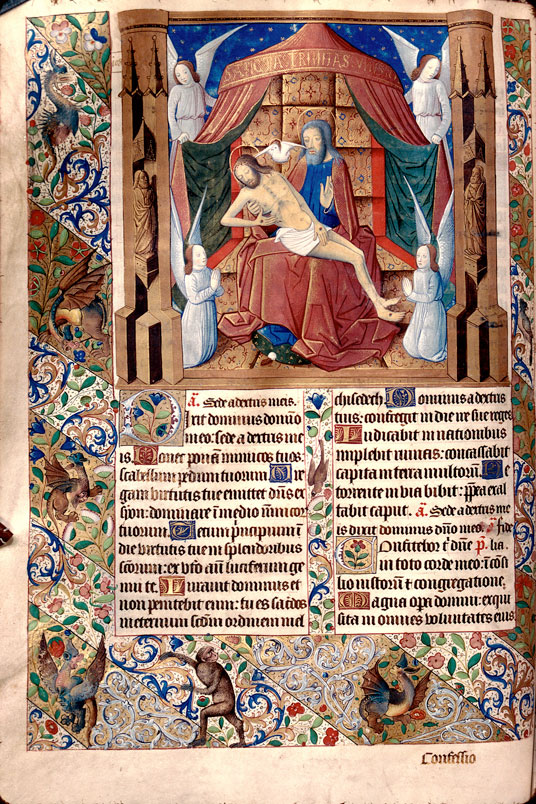 SANCTA TRINITAS
a. Sede a dextris meis.
Dixit dominus domino
meo: sede a dextris me
is Donec ponam inimicos tuos:
scabellum pedum tuorum Uir
gam virtutis tue emittet dn̄s ex
syon: dominare in medio inimicor̄
tuorum Tecum principium in
die virtutis tue in splendoribus
scōrum: ex vtō an̄ luciferum ge
nui te Iurauit dominus et
non penitebit eum: tu es sacdos
in eternum scdm̄ ordinem mel
chisedech Dominus a dextris
tuis: confregit in die ire sue reges
Iudicabit in nationibus
implebit ruinas: conquassabit
capita in terra multorum De
torrente in via bibit: pp̄ea exal
tabit caput. a. Sede a dextris me
is dixit dominus dn̄o meo. a fide
Confitebor t̄ dn̄e p̄. lia.
in toto corde meo: ī cōsi
lio iustorum ⁊ congregatione.
Magna opa domini: exqui
sita in omnes voluntates eius
Confessio